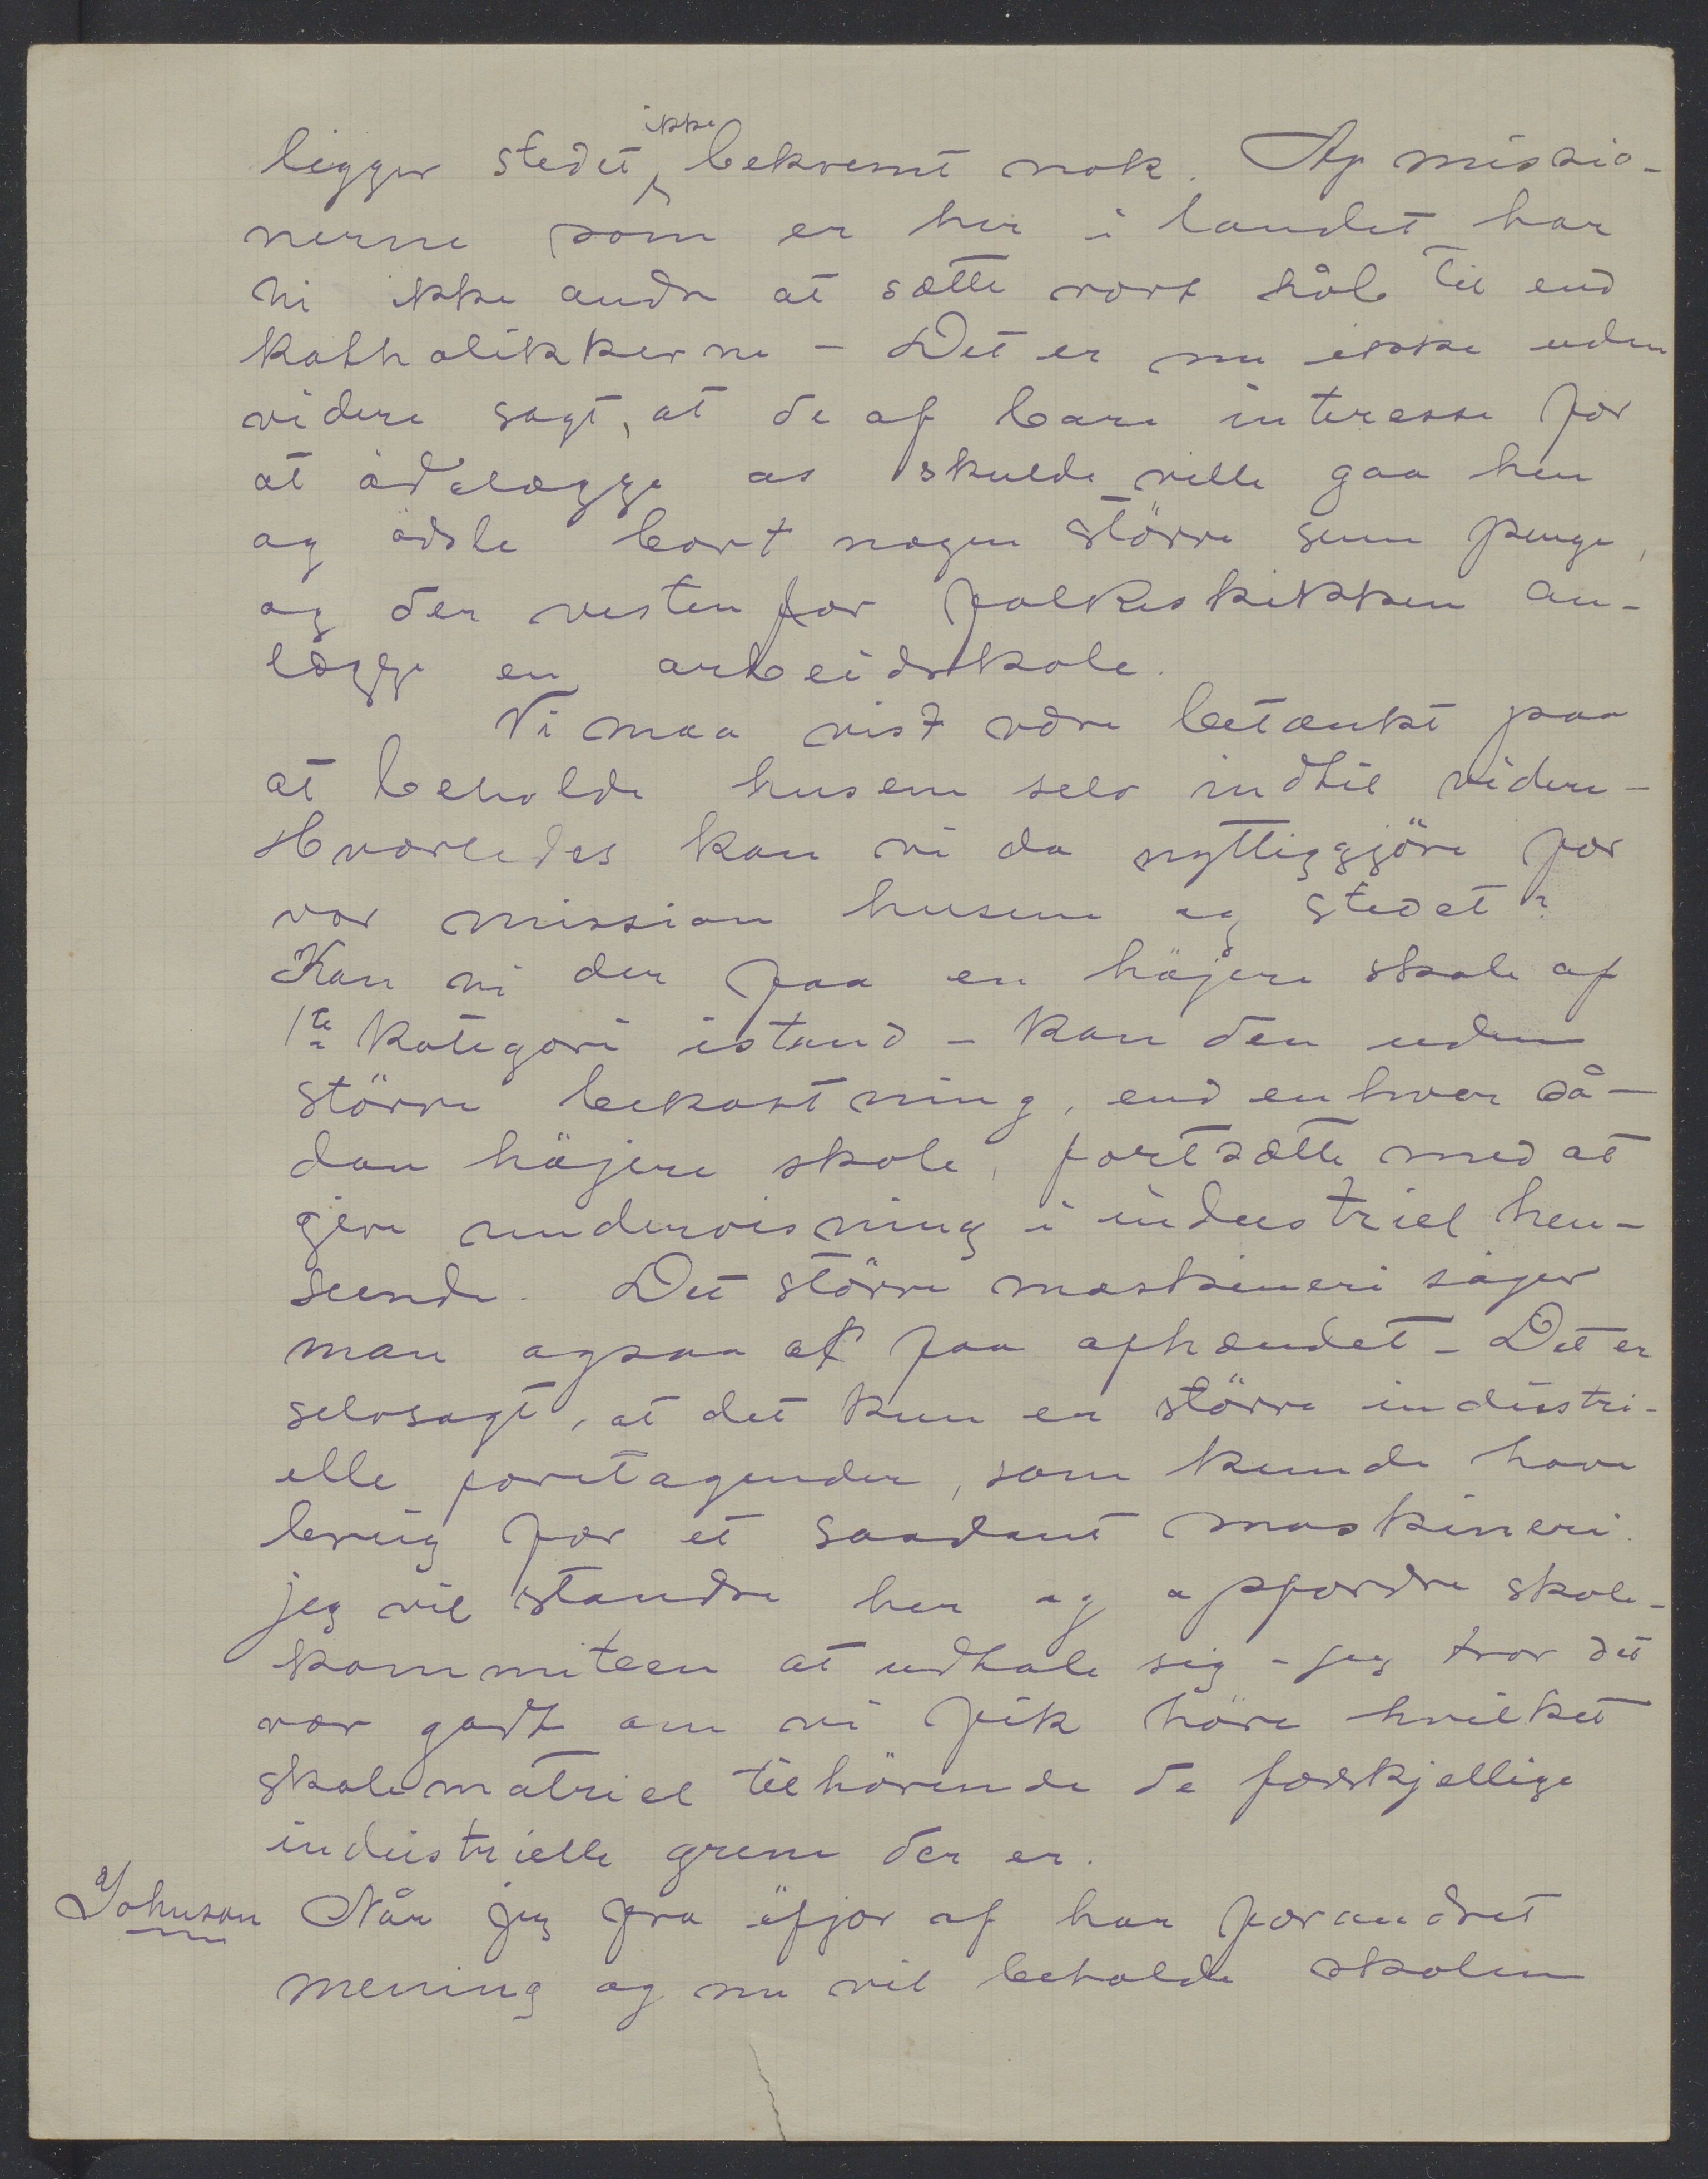 ligger stedet ikke bekvemt nok. Af missio-
nerne som er her i landet har
vi ikke andre at sætte vort håb til end
katholikkerne - Det er nu ikke uden
videre sagt, at de af bare interesse for
at ödelægge os skulde ville gaa hen
og ödsle bort nogen större sum penge,
og der vesten for folkeskikken an-
lægge en arbeidsskole.
Vi maa vist være betænkt paa
at beholde husene selv indtil videre -
Hvorledes kan vi da nyttiggjöre for
vor mission husene og stedet?
Kan vi der faa en höjere skole af
1te kategori istand - kan den uden
större bekostning, end enhver så-
dan höjere skole, fortsætte med at
give undervisning i industriel hen-
seende. Det större maskineri söger
man ogsaa at faa afhændet - Det er
selvsagt, at det kun er större industri-
elle foretagender, som kunde have
brug for et saadant maskineri.
jeg vil standse her og opfordre skole-
kommiteen at udtale sig - jeg tror det
var godt om vi fik höre hvilket
skolematriel tilhörende de forskjellige
industrielle grene der er.
Johnson Når jeg fra ifjor af har forandret
mening og nu vil beholde skolen